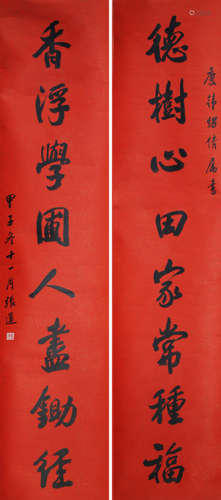 倩屬書
德樹心田家常種福
香浮學圃人盡鋤經
甲子冬十一月張